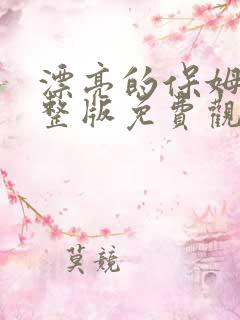 漂亮的保姆
整版免費觀
莫競